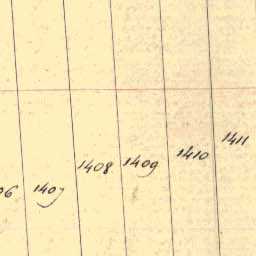 06 1407 1408 1409 1410 1411